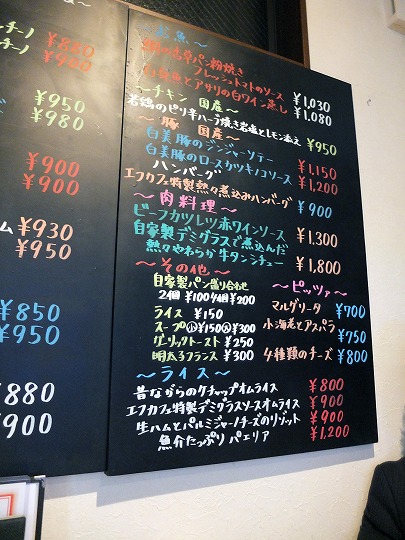 チーノ ¥880
チーノ ¥900
¥950
¥980
¥900
¥900
ム ¥930
¥950
¥850
¥950
¥880
¥900
魚〜
香草パン粉焼き
フレッシュトマトのソース ¥1,030
白身魚とアサリの白ワイン蒸し ¥1,080
〜チキン 国産〜
若鶏のピリ辛ハーブ焼き岩塩とレモン添え ¥950
〜豚 国産〜
白美豚のジンジャーソテー ¥1,150
白美豚のロースカツキノコソース ¥1,200
ハンバーグ
エフカフェ特製熱々煮込みハンバーグ ¥900
〜肉料理〜
ビーフカツレツ赤ワインソース ¥1,300
自家製デミグラスで煮込んだ
熱々やわらか牛タンシチュー ¥1,800
〜その他〜
自家製パン盛り合わせ
2個 ¥100 4個 ¥200
ライス ¥150
スープ小¥150大¥300
ガーリックトースト ¥250
明太フランス ¥300
〜ピッツァ〜
マルゲリータ ¥700
小海老とアスパラ ¥750
4種類のチーズ ¥800
〜ライス〜
昔ながらのケチャップオムライス ¥800
エフカフェ特製デミグラスソースオムライス ¥900
生ハムとパルミジャーノチーズのリゾット ¥900
魚介たっぷり パエリア ¥1,200